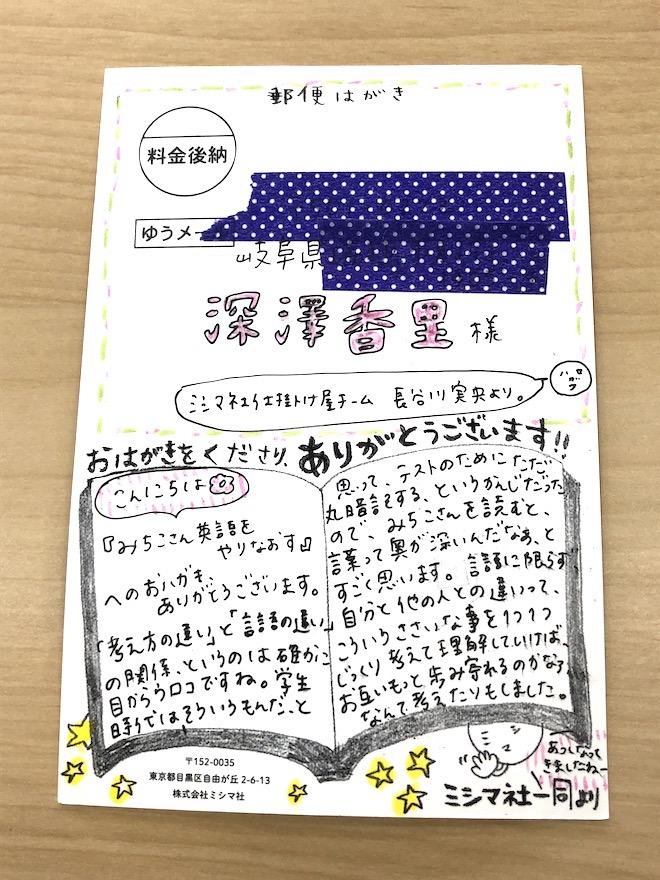 郵便はがき
料金後納
ゆうメー
岐阜県
深澤香里様
ミシマ社仕掛け屋チーム 長谷川実央より。
ハセガワ
おはがきをくださり、ありがとうございます!!
こんにちは
『みちこさん英語を
やりなおす』
へのおハガキ、
ありがとうございます。
「考え方の違い」と「言語の違い」
の関係、というのは確かに
目からウロコですね。学生
時分ではそういうもんだ、と
思って、テストのためにただ
丸暗記する、というかんじだった
ので、みちこさんを読むと、
言葉って奥が深いんだなぁ、と
すごく思います。言語に限らず、
自分と他の人との違いって、
こういうささいな事を1つ1つ
じっくり考えて理解していけば、
お互いもっと歩み寄れるのかなぁ、
なんて考えたりもしました。
あつくなって
きましたねー
〒152-0035
東京都目黒区自由が丘 2-6-13
株式会社ミシマ社
ミシマ社一同より